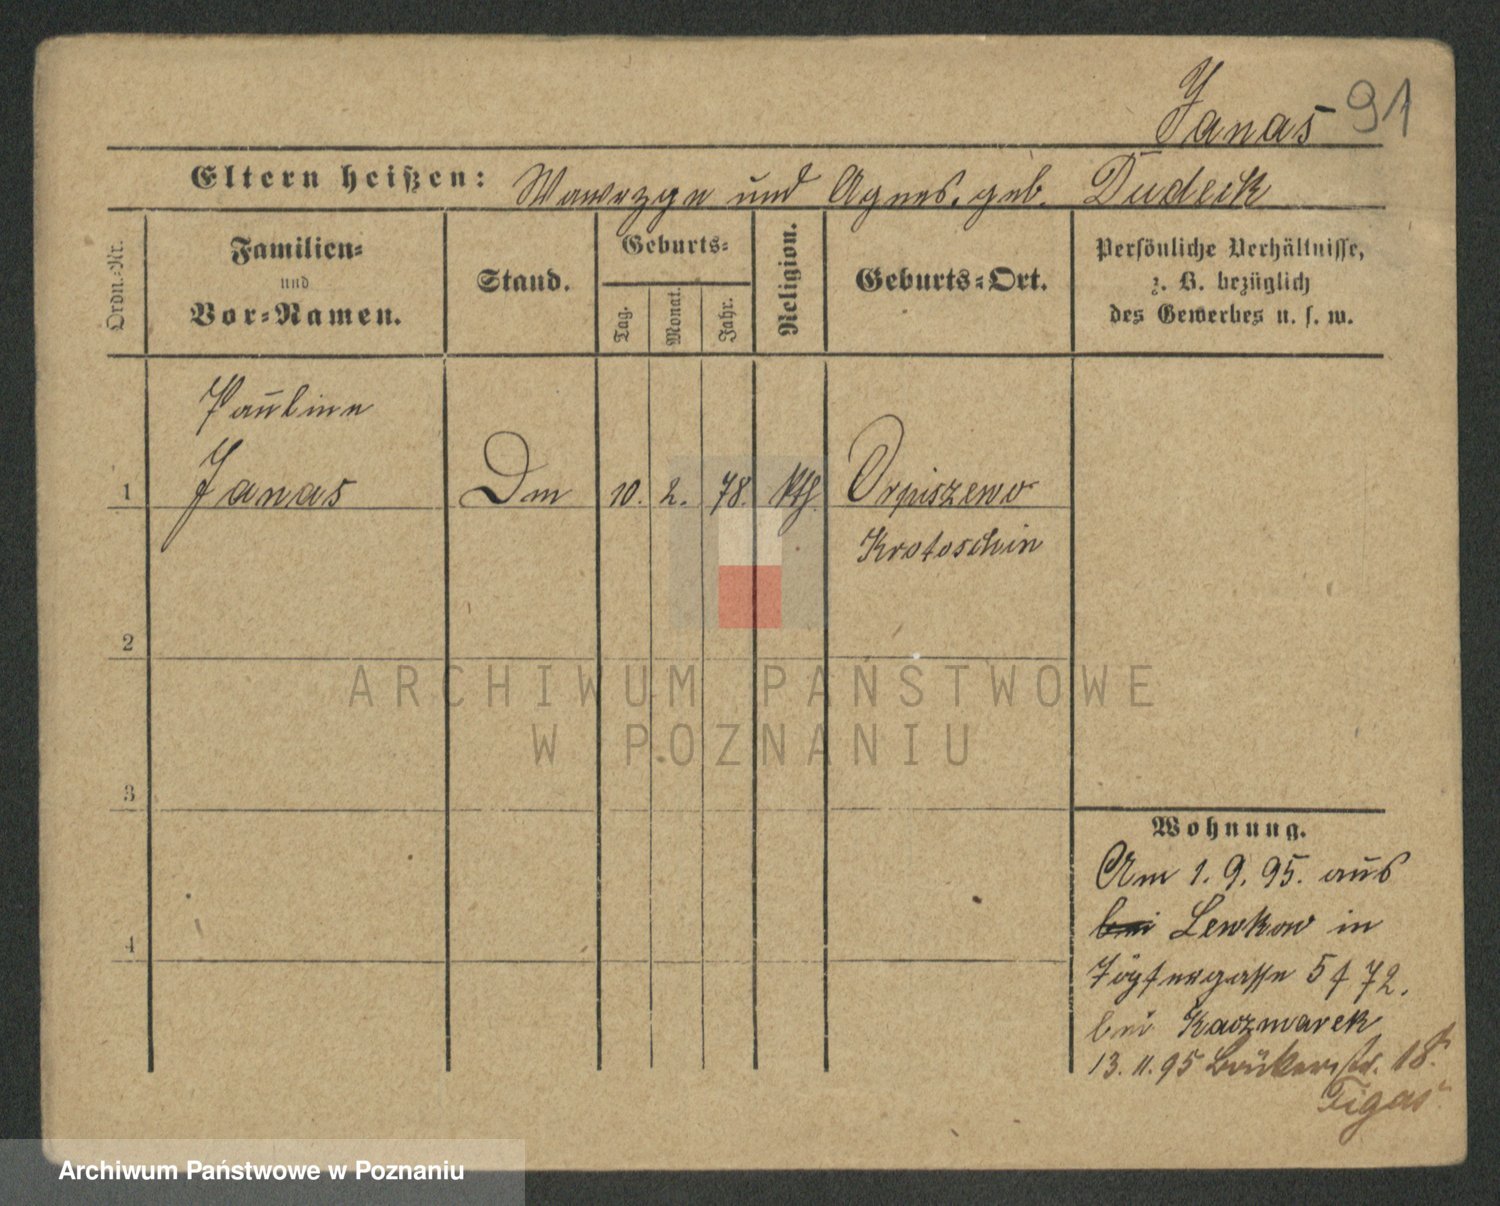 Janas 91
Eltern heißen: Wawrzyn und Agnes, geb. Dudeck
Ordn.-Nr.
Familien-
und
Vor-Namen.
Stand.
Geburts-
Tag.
Monat.
Jahr.
Religion.
Geburts-Ort.
Persönliche Verhältnisse,
z. B. bezüglich
des Gewerbes u. s. w.
Pauline
1 Janas Dm 10. 2. 78. kth. Orpiszewo
Krotoschin
2
3
4
Wohnung.
Am 1. 9. 95. aus
bei Lewkow in
Töpfergasse 5 f 72.
bei Kaczmarek
13. 11. 95 18.
Figas
ARCHIWUM PAŃSTWOWE
W POZNANIU
Archiwum Państwowe w Poznaniu